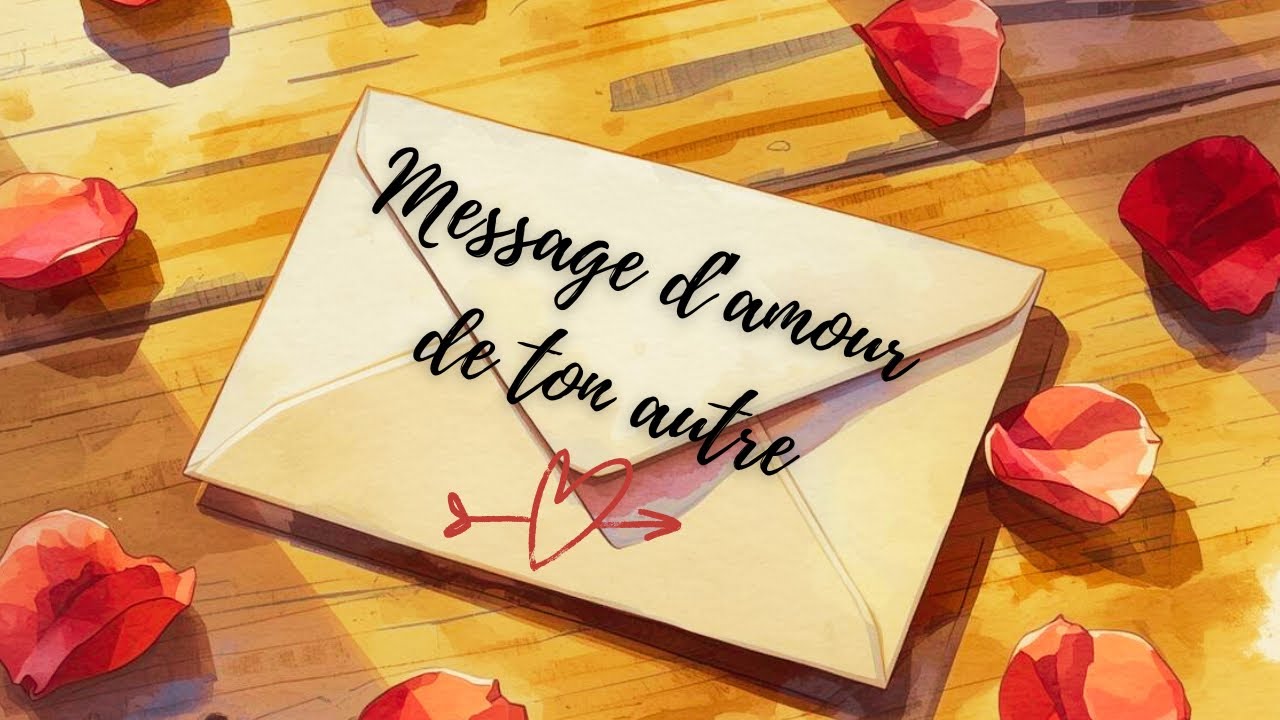 Message d'amour
de ton autre